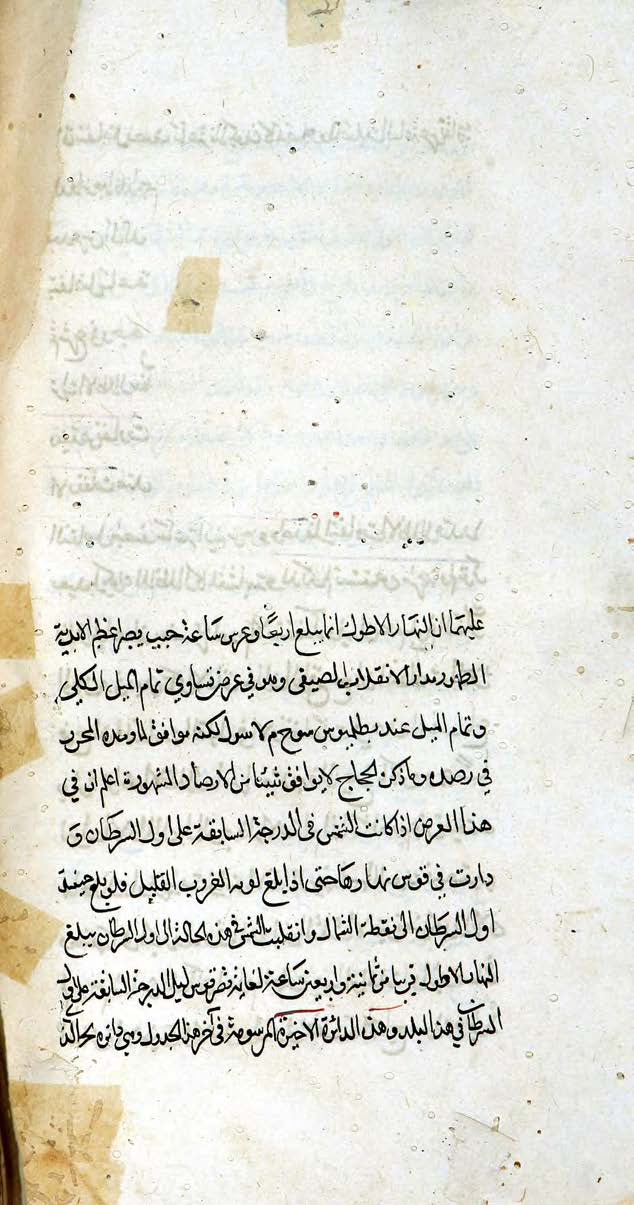 عليهما ان النهار الاطول انما يبلغ اربعا وعشرين ساعة حيث يصير اعظم الابدية
الظهور مدار الانقلاب الصيفى وهو في عرض تساوي تمام الميل الكلى
وتمام الميل عند بطلميوس لكنه موافق لما وجده
في رصده وما ذكن الحجاج لا يوافق شيئا من الارصاد المشهورة اعلم ان في
هذا العرض اذا كانت الشمس فى الدرجة السابقة على اول السرطان و
دارت في قوس نهارها حتى اذا بلغ الغروب القليل فلو بلغ حينئذ
اول السرطان الى نقطة الشمال وانقلبت الشمس في هذه الحالة الى اول السرطان يبلغ
النهار الاطول قريبا من ثمانية واربعين ساعة لغاية قصر قوس ليل الدرجة السابقة على اول
السرطان في هذا البلد وهذه الدائرة الاخيرة المرسومة فى آخر هذا الجدول وهي دائره